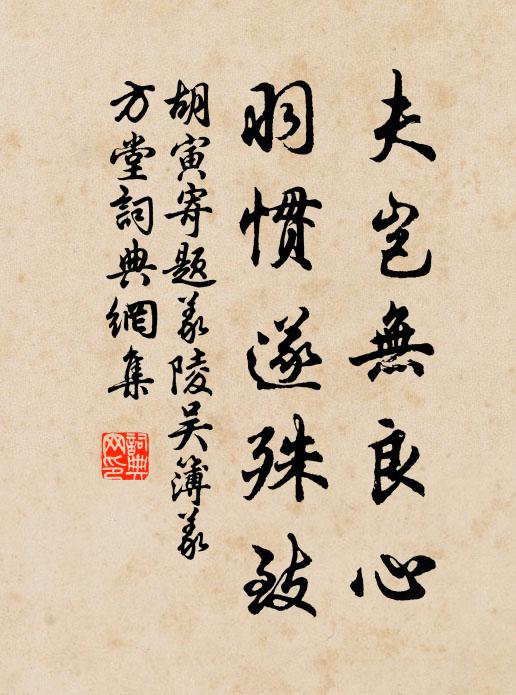 夫豈無良心
習慣遂殊致
胡寅寄題義陵吴簿義
方堂詞典網集
詞典
网印